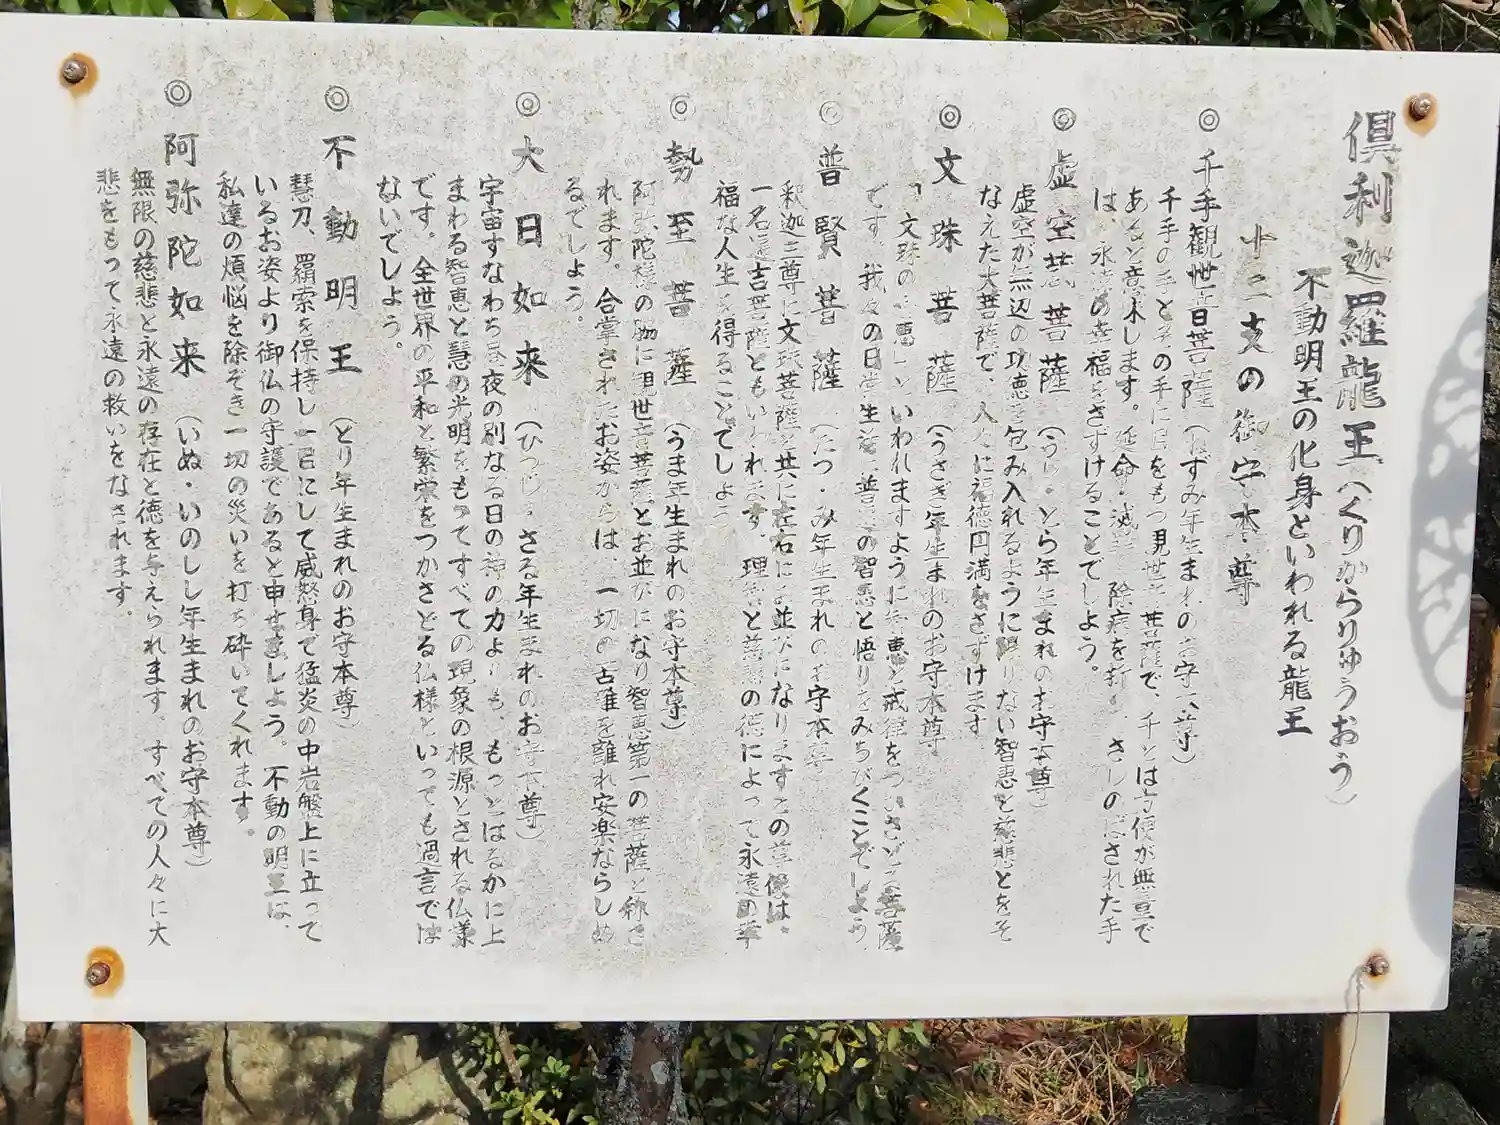 倶利迦羅龍王(くりからりゅうおう)
不動明王の化身といわれる龍王
十二支の御守本尊
◎千手観世音菩薩(ねずみ年生まれのお守本尊)
千手の手とその手に目をもつ観世音菩薩で、千とは方便が無量で
あると意味します。延命・滅罪・除病を打 、さしのばされた手
は、永遠の幸福をさずけることでしょう。
◎虚空蔵菩薩(うし・とら年生まれのお守本尊)
虚空が無辺の功徳を包み入れるように限りない智恵と慈悲とをそ
なえた大菩薩で、人々に福徳円満をさずけます
◎文珠菩薩(うさぎ年生まれのお守本尊
「文珠の智恵」といわれますように知恵と戒律をつかさどる菩薩
です。我々の日常生活に普賢の智恵と悟りをみちびくことでしょう
◎普賢菩薩(たつ・み年生まれのお守本尊
釈迦三尊に文珠菩薩と共に左右にお並びになりますこの尊像は、
一名遍吉菩薩ともいわれます。理智と慈悲の徳によって永遠の幸
福な人生を得ることでしょう
◎勢至菩薩(うま年生まれのお守本尊)
阿弥陀様の脇に観世音菩薩とお並びになり智恵第一の菩薩と称さ
れます。合掌されたお姿からは、一切の苦難を離れ安楽ならしめ
るでしょう。
◎大日如来(ひつじ・さる年生まれのお守本尊)
宇宙すなわち昼夜の別なる日の神の力よりも、もっとはるかに上
まわる智恵と慧の光明をもってすべての現象の根源とされる仏様
です。全世界の平和と繁栄をつかさどる仏様といっても過言では
ないでしょう。
◎不動明王(とり年生まれのお守本尊)
慧刀、羂索を保持し一目にして威怒身で猛炎の中岩盤上に立って
いるお姿より御仏の守護であると申せましょう。不動の明王は、
私達の煩悩を除ぞき一切の災いを打ち砕いてくれます。
◎阿弥陀如来(いぬ・いのしし年生まれのお守本尊)
無限の慈悲と永遠の存在と徳を与えられます。すべての人々に大
悲をもって永遠の救いをなされます。